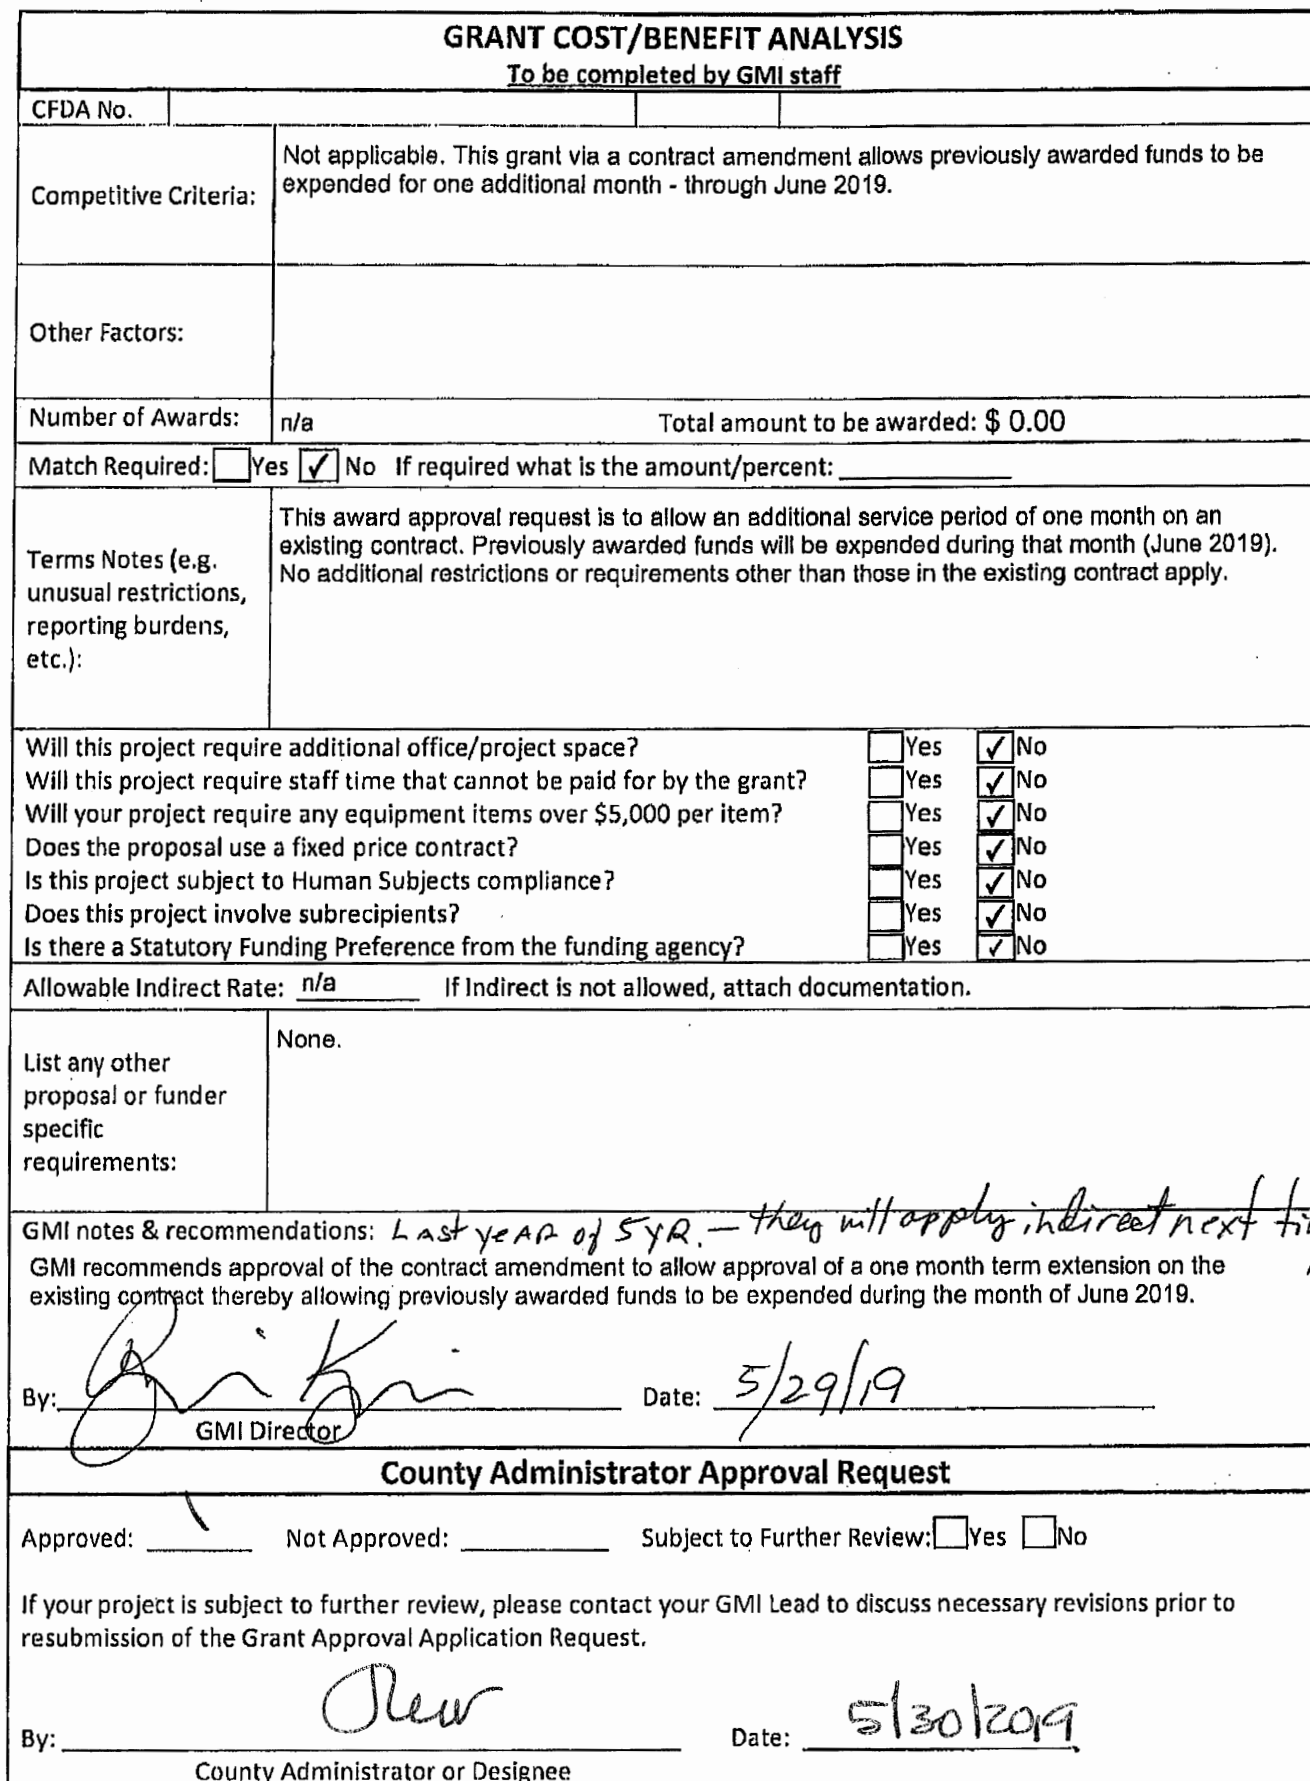 GRANT COST/BENEFIT ANALYSIS
To be completed by GMI staff
CFDA No.
Competitive Criteria:
Not applicable. This grant via a contract amendment allows previously awarded funds to be
expended for one additional month - through June 2019.
Other Factors:
Number of Awards: n/a Total amount to be awarded: $ 0.00
Match Required: Yes ✓ No If required what is the amount/percent:
Terms Notes (e.g.
unusual restrictions,
reporting burdens,
etc.):
This award approval request is to allow an additional service period of one month on an
existing contract. Previously awarded funds will be expended during that month (June 2019).
No additional restrictions or requirements other than those in the existing contract apply.
Will this project require additional office/project space? Yes ✓ No
Will this project require staff time that cannot be paid for by the grant? Yes ✓ No
Will your project require any equipment items over $5,000 per item? Yes ✓ No
Does the proposal use a fixed price contract? Yes ✓ No
Is this project subject to Human Subjects compliance? Yes ✓ No
Does this project involve subrecipients? Yes ✓ No
Is there a Statutory Funding Preference from the funding agency? Yes ✓ No
Allowable Indirect Rate: n/a If Indirect is not allowed, attach documentation.
List any other
proposal or funder
specific
requirements:
None.
GMI notes & recommendations: Last year of 5 yr. — they will apply indirect next
GMI recommends approval of the contract amendment to allow approval of a one month term extension on the
existing contract thereby allowing previously awarded funds to be expended during the month of June 2019.
By: Date: 5/29/19
GMI Director
County Administrator Approval Request
Approved: Not Approved: Subject to Further Review: Yes No
If your project is subject to further review, please contact your GMI Lead to discuss necessary revisions prior to
resubmission of the Grant Approval Application Request.
By: Date: 5/30/2019
County Administrator or Designee